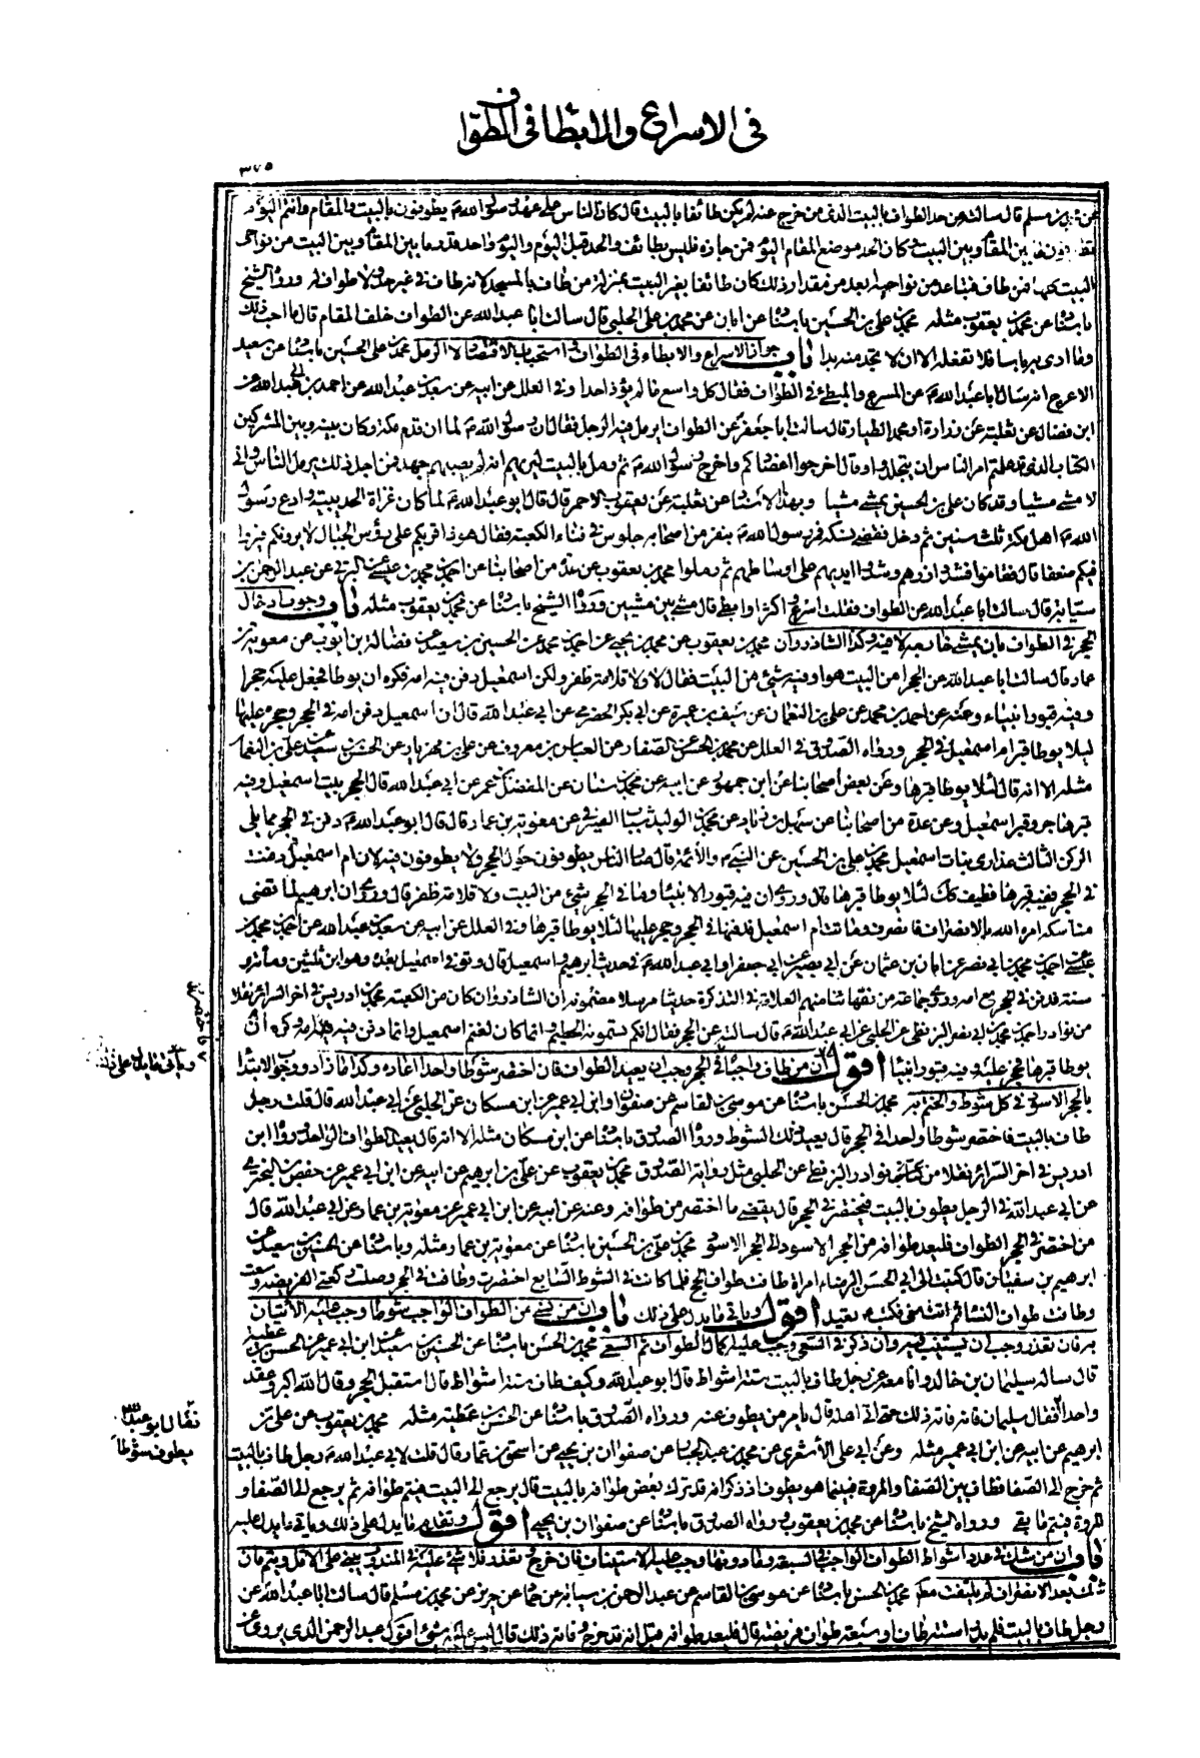 في الاسراع والابطا في الطواف
٣٧٥
مسلم قال سالته عن حد الطواف بالبيت الذي من خرج عنه لم يكن طائفا بالبيت قال كان الناس على عهد رسول الله ص يطوفون بالبيت والمقام وانتم اليوم
تطوفون ما بين المقام وبين البيت فكان الحد موضع المقام اليوم فمن جازه فليس بطائف والحد قبل اليوم واليوم واحد قدر ما بين المقام وبين البيت من نواحي
البيت كلها فمن طاف فتباعد من نواحيه ابعد من مقدار ذلك كان طائفا بغير البيت بمنزلة من طاف بالمسجد لانه طاف في غير حد ولا طواف له ورواه الشيخ
باسناده عن محمد بن يعقوب مثله محمد بن علي بن الحسين باسناده عن ابان عن محمد بن علي الحلبي قال سالت ابا عبد الله عن الطواف خلف المقام قال ما احب ذلك
وما ارى به باسا فلا تفعله الا ان لا تجد منه بدا باب جواز الاسراع والابطاء في الطواف واستحباب الاقتصاد لا الرمل محمد بن علي بن الحسين باسناده عن سعيد
الاعرج انه سال ابا عبد الله ع عن المسرع والمبطئ في الطواف فقال كل واسع ما لم يؤذ احدا وفي العلل عن ابيه عن سعد بن عبد الله عن احمد بن ابي عبد الله عن
ابن فضال عن ثعلبة عن زرارة او محمد الطيار قال سالت ابا جعفر عن الطواف ايرمل فيه الرجل فقال ان رسول الله ص لما ان قدم مكة وكان بينه وبين المشركين
الكتاب الذي قد علمتم امر الناس ان يتجلدوا وقال اخرجوا اعضادكم واخرج رسول الله ص ثم رمل بالبيت ليريهم انه لم يصبهم جهد فمن اجل ذلك يرمل الناس واني
لامشي مشيا وقد كان علي بن الحسين يمشي مشيا وبهذا الاسناد عن ثعلبة عن يعقوب الاحمر قال قال ابو عبد الله ع لما كان غزاة الحديبية وادع رسول
الله ص اهل مكة ثلث سنين ثم دخل فقضى نسكه فمر رسول الله ص بنفر من اصحابه جلوس في فناء الكعبة فقال هو ذا قومكم على رؤس الجبال لا يرونكم فيروا
فيكم ضعفا قال فقاموا فشدوا ازرهم وشدوا ايديهم على اوساطهم ثم رملوا محمد بن يعقوب عن عدة من اصحابنا عن احمد بن محمد بن عيسى عن البرقي عن عبد الرحمن بن
سيابة قال سالت ابا عبد الله عن الطواف فقلت اسرع واكثر او ابطئ قال مشي بين مشيين ورواه الشيخ باسناده عن محمد بن يعقوب مثله باب وجوب ادخال
الحجر في الطواف بان يمشي خارجه لا فيه وكذا الشاذروان محمد بن يعقوب عن محمد بن يحيى عن احمد بن محمد عن الحسين بن سعيد عن فضالة بن ايوب عن معوية بن
عمار قال سالت ابا عبد الله عن الحجر امن البيت هو او فيه شئ من البيت فقال لا ولا قلامة ظفر ولكن اسمعيل دفن فيه امه فكره ان يوطا فجعل عليه حجرا
وفيه قبور انبياء وعنه عن احمد بن محمد عن علي بن النعمان عن سيف بن عميرة عن ابي بكر الحضرمي عن ابي عبد الله قال ان اسمعيل دفن امه في الحجر وحجر عليها
لئلا يوطا قبر ام اسمعيل في الحجر ورواه الصدوق في العلل عن محمد بن الحسن عن الصفار عن العباس بن معروف عن علي بن مهزيار عن الحسين بن سعيد عن علي بن النعمان
مثله الا انه قال لئلا يوطا قبرها وعن بعض اصحابنا عن ابن جمهور عن ابيه عن محمد بن سنان عن المفضل بن عمر عن ابي عبد الله قال الحجر بيت اسمعيل وفيه
قبر هاجر وقبر اسمعيل وعن عدة من اصحابنا عن سهل بن زياد عن محمد بن الوليد شباب الصيرفي عن معوية بن عمار قال قال ابو عبد الله ع دفن في الحجر مما يلي
الركن الثالث عذارى بنات اسمعيل محمد بن علي بن الحسين عن النبي ص والائمة قال صار الناس يطوفون حول الحجر ولا يطوفون فيه لان ام اسمعيل دفنت
في الحجر ففيه قبرها فطيف كذلك لئلا يوطا قبرها قال وروي ان فيه قبور الانبياء وما في الحجر شئ من البيت ولا قلامة ظفر قال وروي ان ابرهيم لما قضى
مناسكه امره الله بالانصراف فانصرف وماتت ام اسمعيل فدفنها في الحجر وحجر عليها لئلا يوطا قبرها وفي العلل عن ابيه عن سعد بن عبد الله عن احمد بن محمد بن
عيسى عن احمد بن محمد بن ابي نصر عن ابان بن عثمان عن ابي بصير عن ابي جعفر او ابي عبد الله ع في حديث ابرهيم واسمعيل قال وتوفي اسمعيل بعده وهو ابن ثلثين ومأة
سنة فدفن في الحجر مع امه وروى جماعة من فقهائنا منهم العلامة في التذكرة حديثا مرسلا مضمونه ان الشاذروان كان من الكعبة محمد بن ادريس في اخر السرائر نقلا
من نوادر احمد بن محمد بن ابي نصر البزنطي عن الحلبي عن ابي عبد الله ع قال سالته عن الحجر فقال انكم تسمونه الحطيم وانما كان لغنم اسمعيل وانما دفن فيه امه وكره ان
يوطا قبرها فحجر عليه وفيه قبور انبياء اقول باب ان من طاف واجبا في الحجر وجب ان يعيد الطواف فان اختصر شوطا واحدا اعاده وكذا ما زاد ووجوب الابتدا
بالحجر الاسود في كل شوط والختم به محمد بن الحسن باسناده عن موسى بن القاسم عن صفوان وابن ابي عمير عن ابن مسكان عن الحلبي عن ابي عبد الله قال قلت رجل
طاف بالبيت فاختصر شوطا واحدا في الحجر قال يعيد ذلك الشوط ورواه الصدوق باسناده عن ابن مسكان مثله الا انه قال يعيد الطواف الواحد وروا ابن
ادريس في اخر السرائر نقلا من كتاب نوادر البزنطي عن الحلبي مثل رواية الصدوق محمد بن يعقوب عن علي بن ابرهيم عن ابيه عن ابن ابي عمير عن حفص بن البختري
عن ابي عبد الله في الرجل يطوف بالبيت فيختصر في الحجر قال يقضي ما اختصر من طوافه وعنه عن ابيه عن ابن ابي عمير عن معوية بن عمار عن ابي عبد الله قال
من اختصر في الحجر الطواف فليعد طوافه من الحجر الاسود الى الحجر الاسود محمد بن علي بن الحسين باسناده عن معوية بن عمار مثله وباسناده عن الحسين بن سعيد عن
ابرهيم بن سفيان قال كتبت الى ابي الحسن الرضاء امراة طافت طواف الحج فلما كانت في الشوط السابع اختصرت وطافت في الحجر وصلت ركعتي الفريضة وسعت
وطافت طواف النساء ثم اتت منى فكتب ع تعيد اقول وياتي ما يدل على ذلك باب ان من نسي من الطواف الواجب شوطا وجب عليه الاتيان
به فان تعذر وجب ان يستنيب فيه وان ذكر في السعي وجب عليه اكمال الطواف ثم السعي محمد بن الحسن باسناده عن الحسين بن سعيد عن ابن ابي عمير عن الحسن بن عطية
قال ساله سليمان بن خالد وانا معه عن رجل طاف بالبيت ستة اشواط قال ابو عبد الله وكيف طاف ستة اشواط قال استقبل الحجر وقال الله اكبر وعقد
واحدا فقال سليمان فانه فاته ذلك حتى اتى اهله قال يامر من يطوف عنه ورواه الصدوق باسناده عن الحسن بن عطية مثله محمد بن يعقوب عن علي بن
ابرهيم عن ابيه عن ابن ابي عمير مثله وعن ابي علي الاشعري عن محمد بن عبد الجبار عن صفوان بن يحيى عن اسحق بن عمار قال قلت لابي عبد الله ع رجل طاف بالبيت
ثم خرج الى الصفا فطاف بين الصفا والمروة فبينما هو يطوف اذ ذكر انه قد ترك بعض طوافه بالبيت قال يرجع الى البيت فيتم طوافه ثم يرجع الى الصفا و
المروة فيتم ما بقي ورواه الشيخ باسناده عن محمد بن يعقوب ورواه الصدوق باسناده عن صفوان بن يحيى اقول وتقدم ما يدل على ذلك وياتي ما يدل عليه
باب ان من شك في عدد اشواط الطواف الواجب في السبعة وما دونها وجب عليه الاستيناف فان خرج وتعذر فلا شئ عليه وفي المندوب يبني على الاقل ويتم فان
شك بعد الانصراف لم يلتفت محمد بن الحسن باسناده عن موسى بن القاسم عن عبد الرحمن بن سيابة عن حماد عن حريز عن محمد بن مسلم قال سالت ابا عبد الله عن
رجل طاف بالبيت فلم يدر استة طاف او سبعة طواف فريضة قال فليعد طوافه قيل انه قد خرج وفاته ذلك قال ليس عليه شئ اقول عبد الرحمن الذي يروي عن
فقال ابو عبد الله
يطوف شوطا